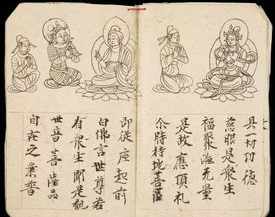 具一切功德
慈眼視衆生
福聚海无量
是故應頂礼
尒時持地菩薩
即從座起前
白佛言世尊若
有衆生聞是觀
世音菩薩品
自在之業普